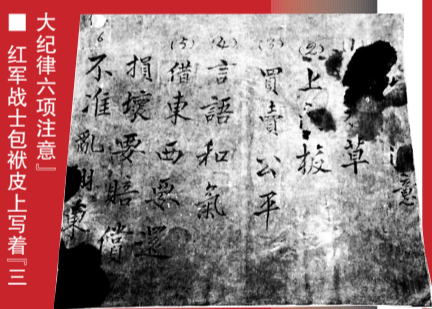 ■ 红军战士包袱皮上写着『三
大纪律六项注意』
意
草
(2) 上 板
(3) 買賣公平
(4) 言語和氣
(5) 借東西要還
損壞要賠償
6 不准亂 東